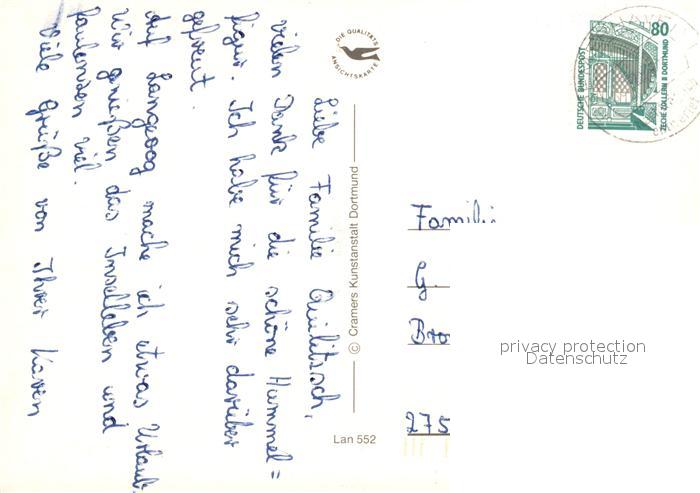 Liebe Familie Quilitzsch,
vielen Dank für die schöne Hummel=
figur. Ich habe mich sehr darüber
gefreut.
Auf Langeoog mache ich etwas Urlaub.
Wir genießen das Inselleben und
faulenzen viel.
Viele Grüße von Ihrer Karen
DIE QUALITÄTS
ANSICHTSKARTE
© Cramers Kunstanstalt Dortmund
Lan 552
80
DEUTSCHE BUNDESPOST
ZECHE ZOLLERN II DORTMUND
Familie
G.
275
privacy protection
Datenschutz